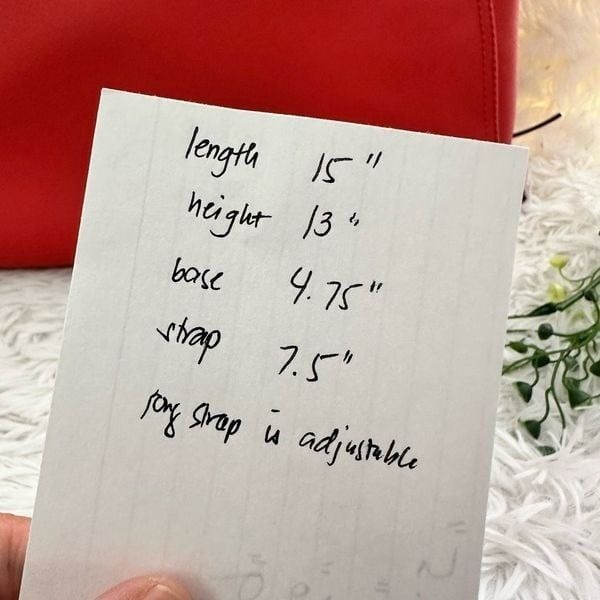 length 15"
height 13"
base 4.75"
strap 7.5"
long strap is adjustable